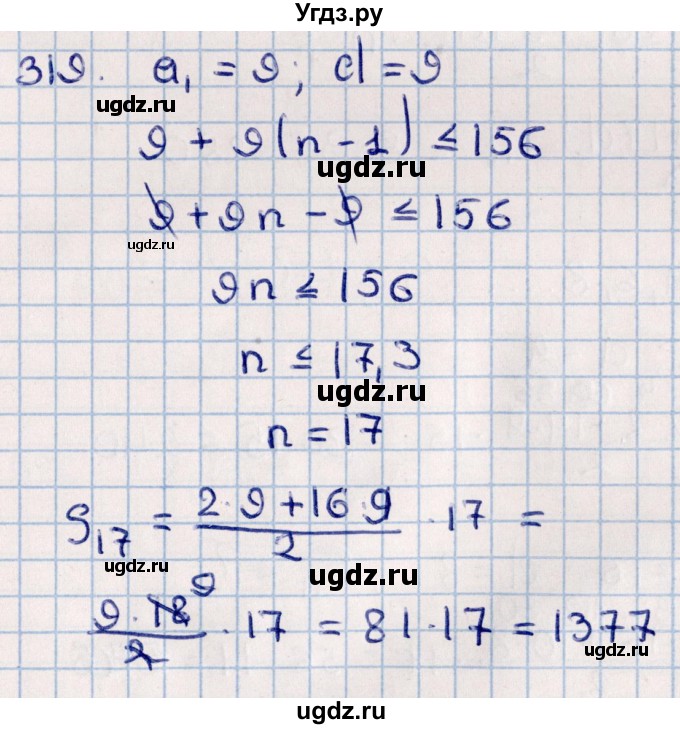 Угдз.ру
319. a₁ = 9; d = 9
ugdz.ru
9 + 9(n - 1) ≤ 156
ugdz.ru
9 + 9n - 9 ≤ 156
ugdz.ru
9n ≤ 156
n ≤ 17,3
ugdz.ru
n = 17
S₁₇ = (2·9 + 16·9)/2 · 17 =
ugdz.ru
ugdz.ru
9
(9·18)/2 · 17 = 81·17 = 1377
ugdz.ru
ugdz.ru